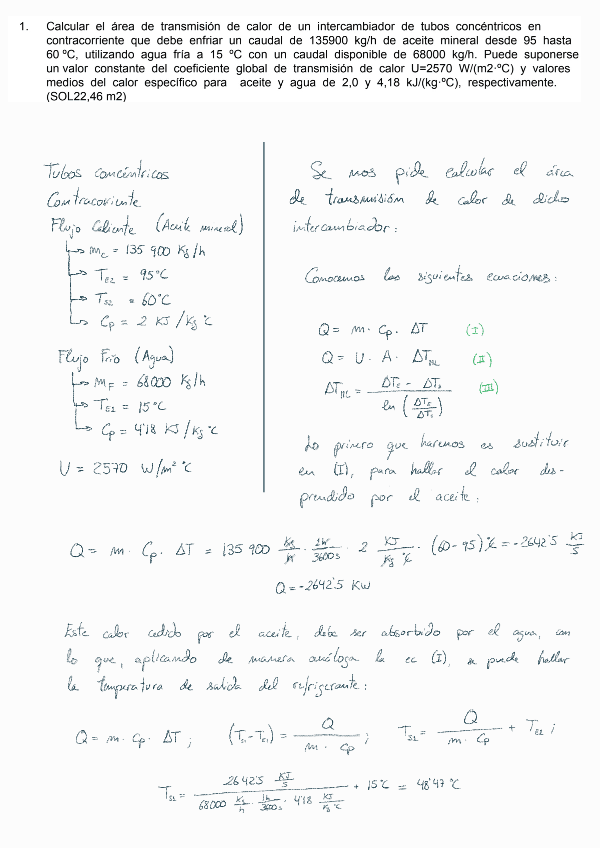 1. Calcular el área de transmisión de calor de un intercambiador de tubos concéntricos en
contracorriente que debe enfriar un caudal de 135900 kg/h de aceite mineral desde 95 hasta
60 ºC, utilizando agua fría a 15 ºC con un caudal disponible de 68000 kg/h. Puede suponerse
un valor constante del coeficiente global de transmisión de calor U=2570 W/(m2·ºC) y valores
medios del calor específico para aceite y agua de 2,0 y 4,18 kJ/(kg·ºC), respectivamente.
(SOL22,46 m2)
Tubos concéntricos
Contracorriente
Flujo Caliente (Aceite mineral)
mc = 135 900 Kg/h
TE2 = 95°C
TS2 = 60°C
Cp = 2 KJ/Kg °C
Flujo Frío (Agua)
mF = 68000 Kg/h
TE1 = 15°C
Cp = 4'18 KJ/Kg °C
U = 2570 W/m² °C
Se nos pide calcular el área
de transmisión de calor de dicho
intercambiador:
Conocemos las siguientes ecuaciones:
Q = m · Cp · ΔT (I)
Q = U · A · ΔTML (II)
ΔTML = (ΔTE - ΔTS) / ln (ΔTE/ΔTS) (III)
Lo primero que haremos es sustituir
en (I), para hallar el calor des-
prendido por el aceite:
Q = m · Cp · ΔT = 135 900 Kg/h · 1h/3600s · 2 KJ/Kg °C · (60-95)°C = -2642'5 KJ/S
Q = -2642'5 KW
Este calor cedido por el aceite, debe ser absorbido por el agua, con
lo que, aplicando de manera análoga la ec (I), se puede hallar
la temperatura de salida del refrigerante:
Q = m · Cp · ΔT ; (TS1 - TE1) = Q / (m · Cp) ; TS1 = Q / (m · Cp) + TE1 ;
TS1 = 2642'5 KJ/S / (68000 Kg/h · 1h/3600s · 4'18 KJ/Kg °C) + 15°C = 48'47 °C